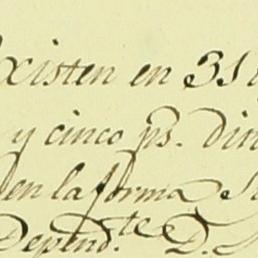 existen en 31
y cinco ps. din
en la forma S
Depend.te D.